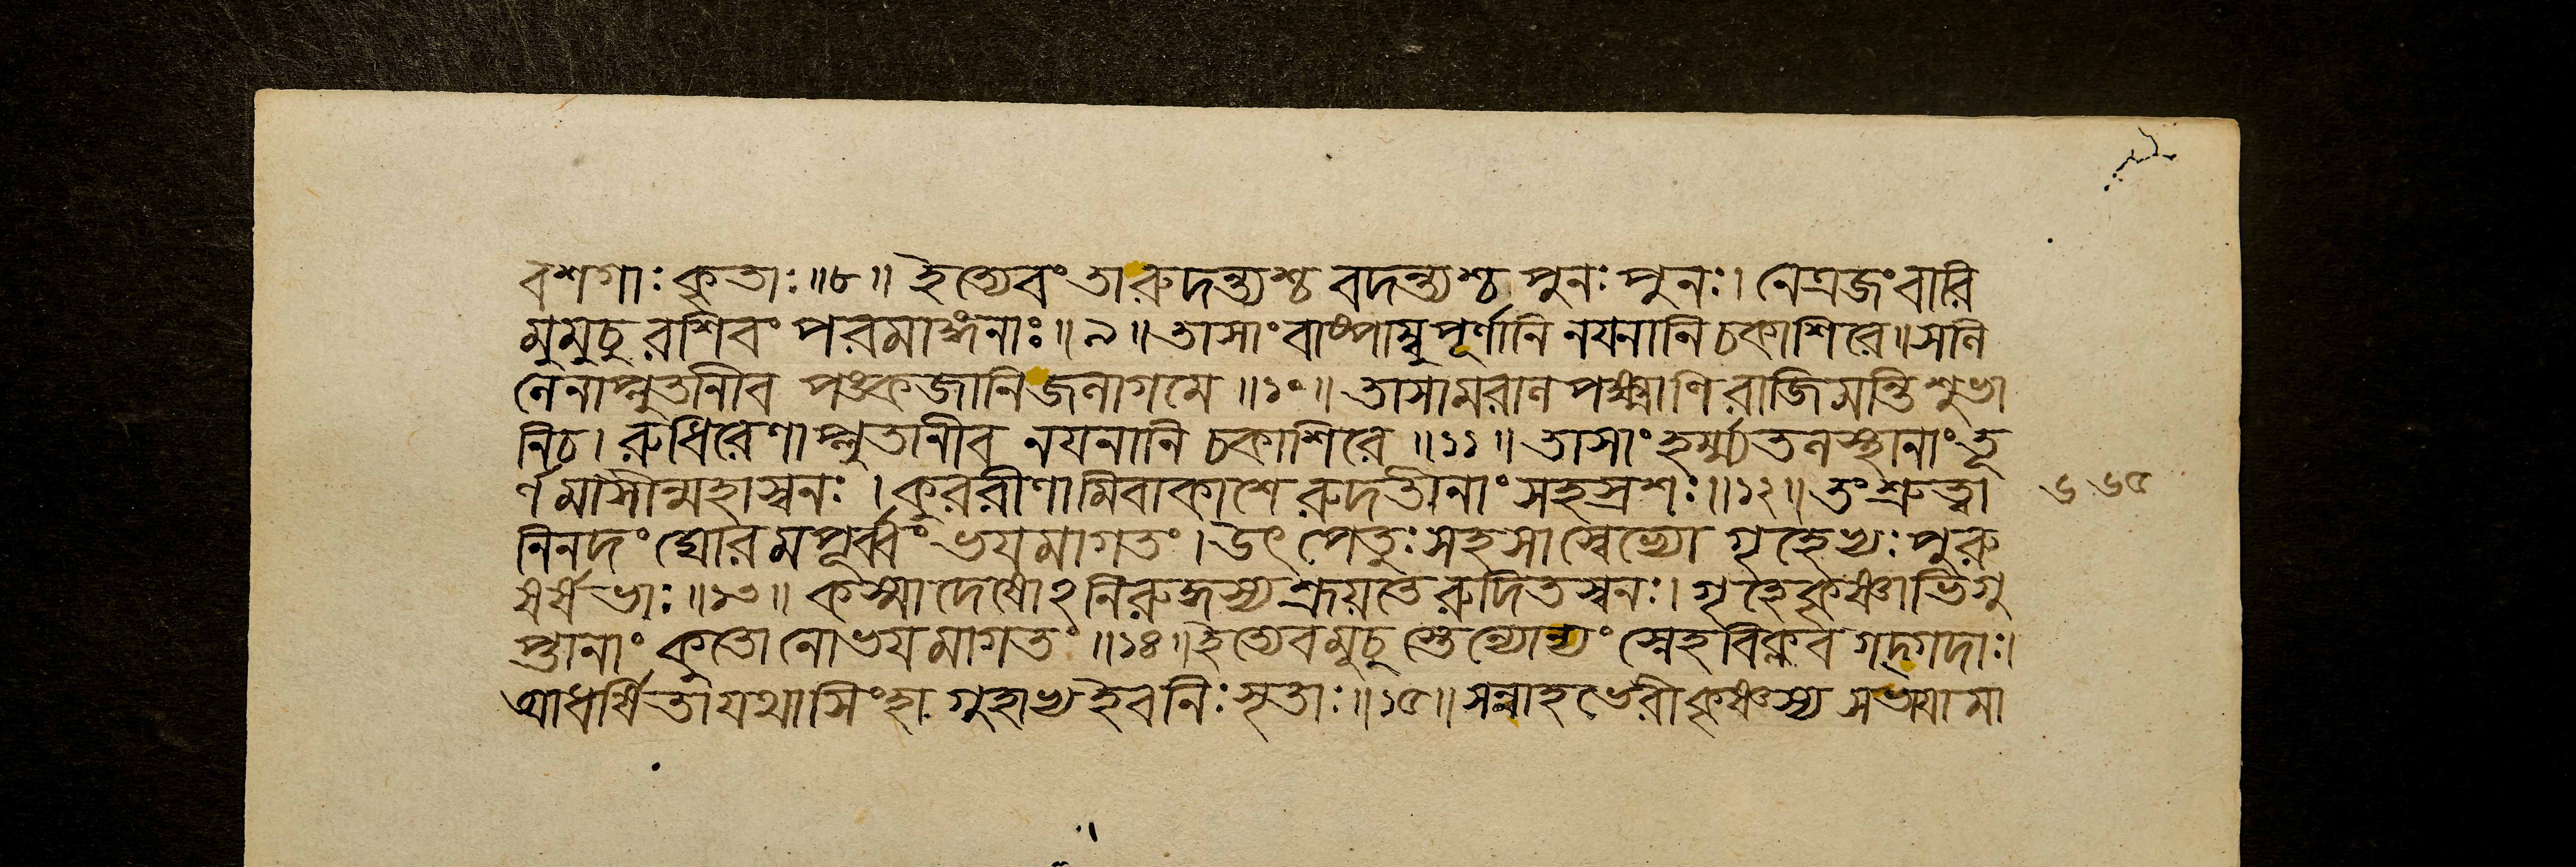 বশগাঃ কৃতাঃ ॥৮॥ ইত্যেবং তা রুদন্ত্যশ্চ বদন্ত্যশ্চ পুনঃ পুনঃ। নেত্রজং বারি
মুমুচুরশিবং পরমাঙ্গনাঃ ॥৯॥ তাসাং বাষ্পাম্বুপূর্ণানি নয়নানি চকাশিরে॥ সলি
লেনাপ্লুতানীব পঙ্কজানি জলাগমে ॥১০॥ তাসামরাল পক্ষ্মাণি রাজিমন্তি শুভা
নিচ। রুধিরেণাপ্লুতানীব নয়নানি চকাশিরে ॥১১॥ তাসাং হর্ম্ম্যতলস্থানাং তূ
র্ণমাসীন্মহাস্বনঃ । কুররীণামিবাকাশে রুদতীনাং সহস্রশঃ ॥১২॥ তং শ্রুত্বা ৬ ৬৫
নিনদং ঘোরমপূর্ব্বং ভয়মাগতং। উৎপেতুঃ সহসা স্বেভ্যো গৃহেভ্যঃ পুরু
ষর্ষভাঃ ॥১৩॥ কস্মাদেষোঽনিরুদ্ধস্য শ্রূয়তে রুদিতস্বনঃ। গৃহে কৃষ্ণাভিগু
প্তানাং কুতো নো ভয়মাগতং ॥১৪॥ ইত্যেবমূচুস্তেন্যোন্যং স্নেহবিক্লবগদ্গদাঃ।
আধর্ষিতা যথা সিংহা গুহাভ্য ইব নিঃসৃতাঃ ॥১৫॥ সন্নাহভেরী কৃষ্ণস্য সভায়ামা